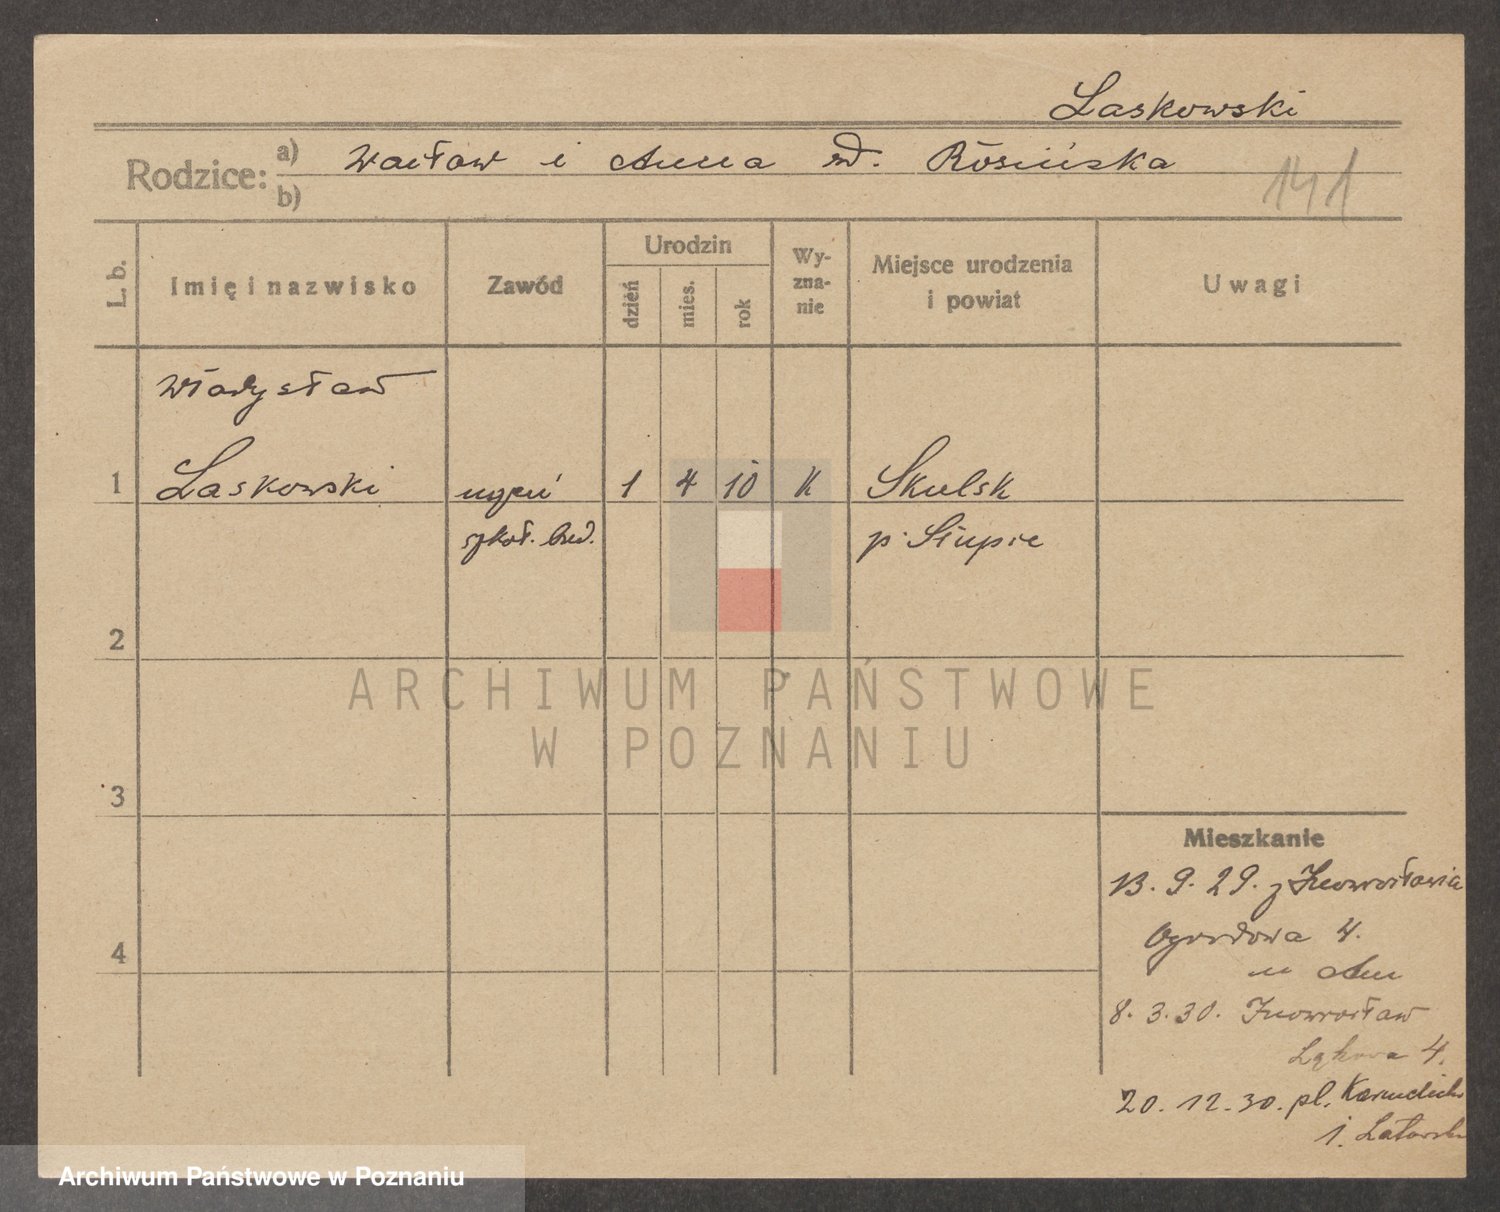 Laskowski
Rodzice: a) Wacław i Anna zd. Rosińska
b)
141
L. b.
Imię i nazwisko
Zawód
Urodzin
dzień
mies.
rok
Wy-
zna-
nie
Miejsce urodzenia
i powiat
Uwagi
Władysław
1 Laskowski uczeń 1 4 10 K Skulsk
szkoł. bud. p. Słupie
2
ARCHIWUM PAŃSTWOWE
W POZNANIU
3
Mieszkanie
13. 9. 29. z Inowrocławia
Ogrodowa 4.
u
4
8. 3. 30. Inowrocław
4.
20. 12. 30. pl.
Archiwum Państwowe w Poznaniu